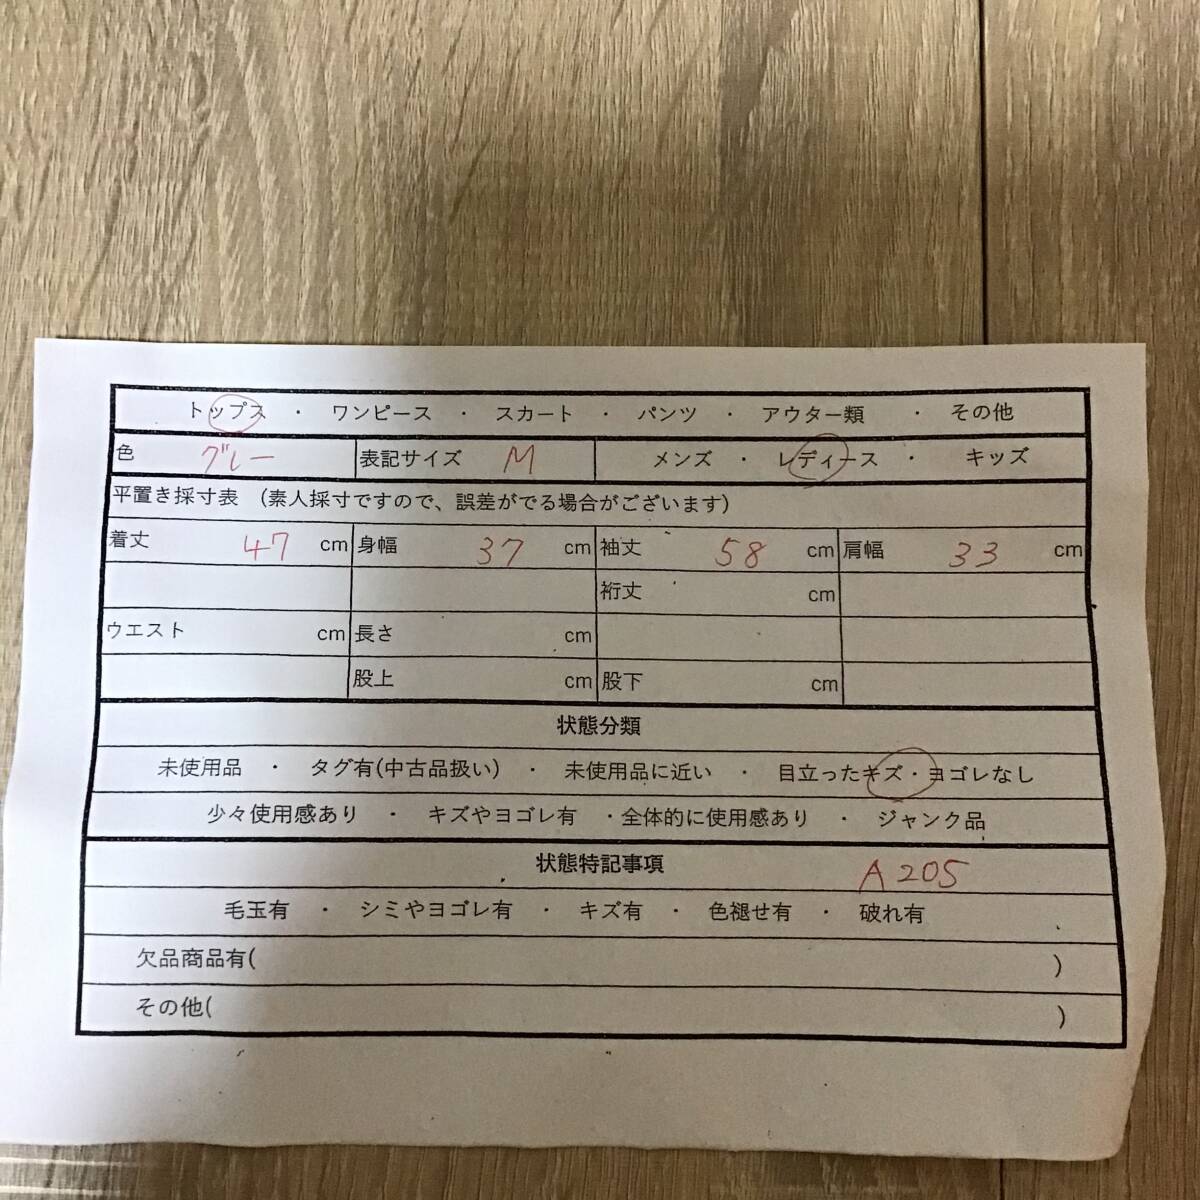 トップス ・ ワンピース ・ スカート ・ パンツ ・ アウター類 ・ その他
色 グレー 表記サイズ M メンズ ・ レディース ・ キッズ
平置き採寸表 (素人採寸ですので、誤差がでる場合がございます)
着丈 47 cm 身幅 37 cm 袖丈 58 cm 肩幅 33 cm
裄丈 cm
ウエスト cm 長さ cm
股上 cm 股下 cm
状態分類
未使用品 ・ タグ有(中古品扱い) ・ 未使用品に近い ・ 目立ったキズ・ヨゴレなし
少々使用感あり ・ キズやヨゴレ有 ・全体的に使用感あり ・ ジャンク品
状態特記事項 A205
毛玉有 ・ シミやヨゴレ有 ・ キズ有 ・ 色褪せ有 ・ 破れ有
欠品商品有( )
その他( )